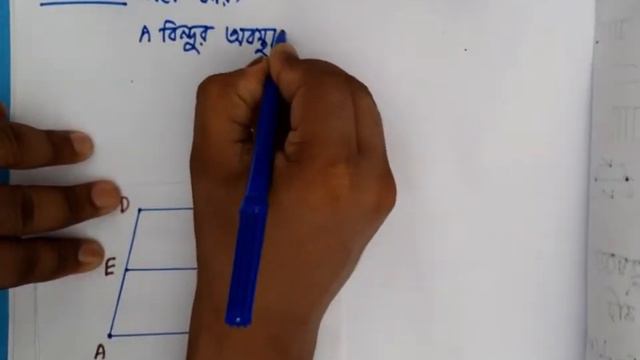 A বিন্দুর অবস্থা
D
E
A